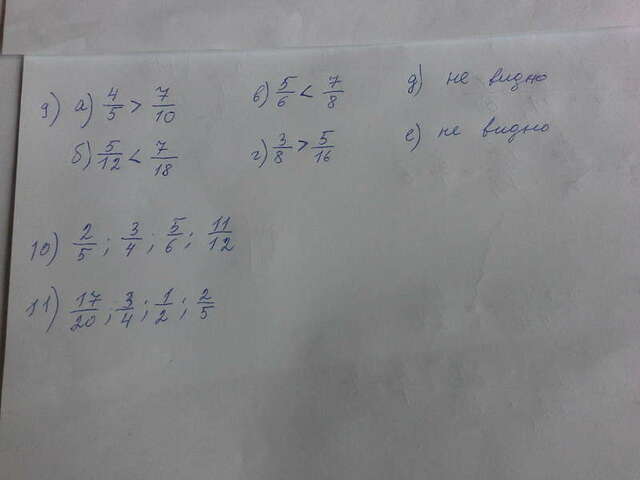 9) а) 4/5 > 7/10 в) 5/6 < 7/8 д) не видно
б) 5/12 < 7/18 г) 3/8 > 5/16 е) не видно
10) 2/5 ; 3/4 ; 5/6 ; 11/12
11) 17/20 ; 3/4 ; 1/2 ; 2/5